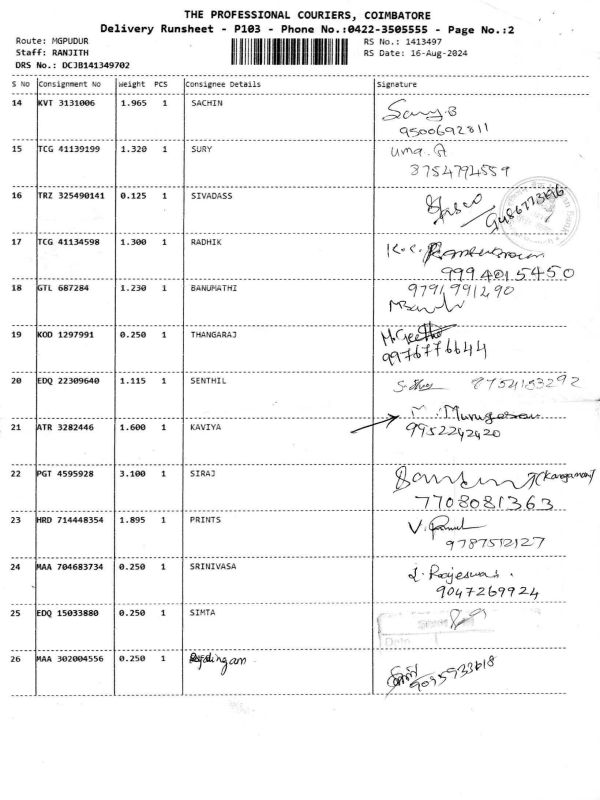 THE PROFESSIONAL COURIERS, COIMBATORE
Delivery Runsheet - P103 - Phone No.:0422-3505555 - Page No.:2
Route: MGPUDUR
RS No.: 1413497
Staff: RANJITH
RS Date: 16-Aug-2024
DRS No.: DCJB141349702
S No Consignment No Weight PCS Consignee Details Signature
14 KVT 3131006 1.965 1 SACHIN
9500692811
15 TCG 41139199 1.320 1 SURY Uma. A
8754794559
16 TRZ 325490141 0.125 1 SIVADASS
17 TCG 41134598 1.300 1 RADHIK K.C.
9994015450
18 GTL 687284 1.230 1 BANUMATHI 9791991290
19 KOD 1297991 0.250 1 THANGARAJ M.Geetha
9976776644
20 EDQ 22309640 1.115 1 SENTHIL 8754153292
21 ATR 3282446 1.600 1 KAVIYA M. Murugesan
9952242420
22 PGT 4595928 3.100 1 SIRAJ
7708081363
23 HRD 714448354 1.895 1 PRINTS V.
9787512127
24 MAA 704683734 0.250 1 SRINIVASA
9047269924
25 EDQ 15033880 0.250 1 SIMTA
Date
26 MAA 302004556 0.250 1
9095933618